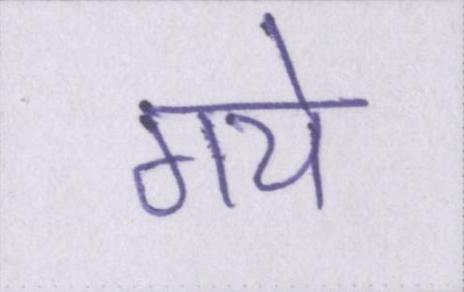 गये